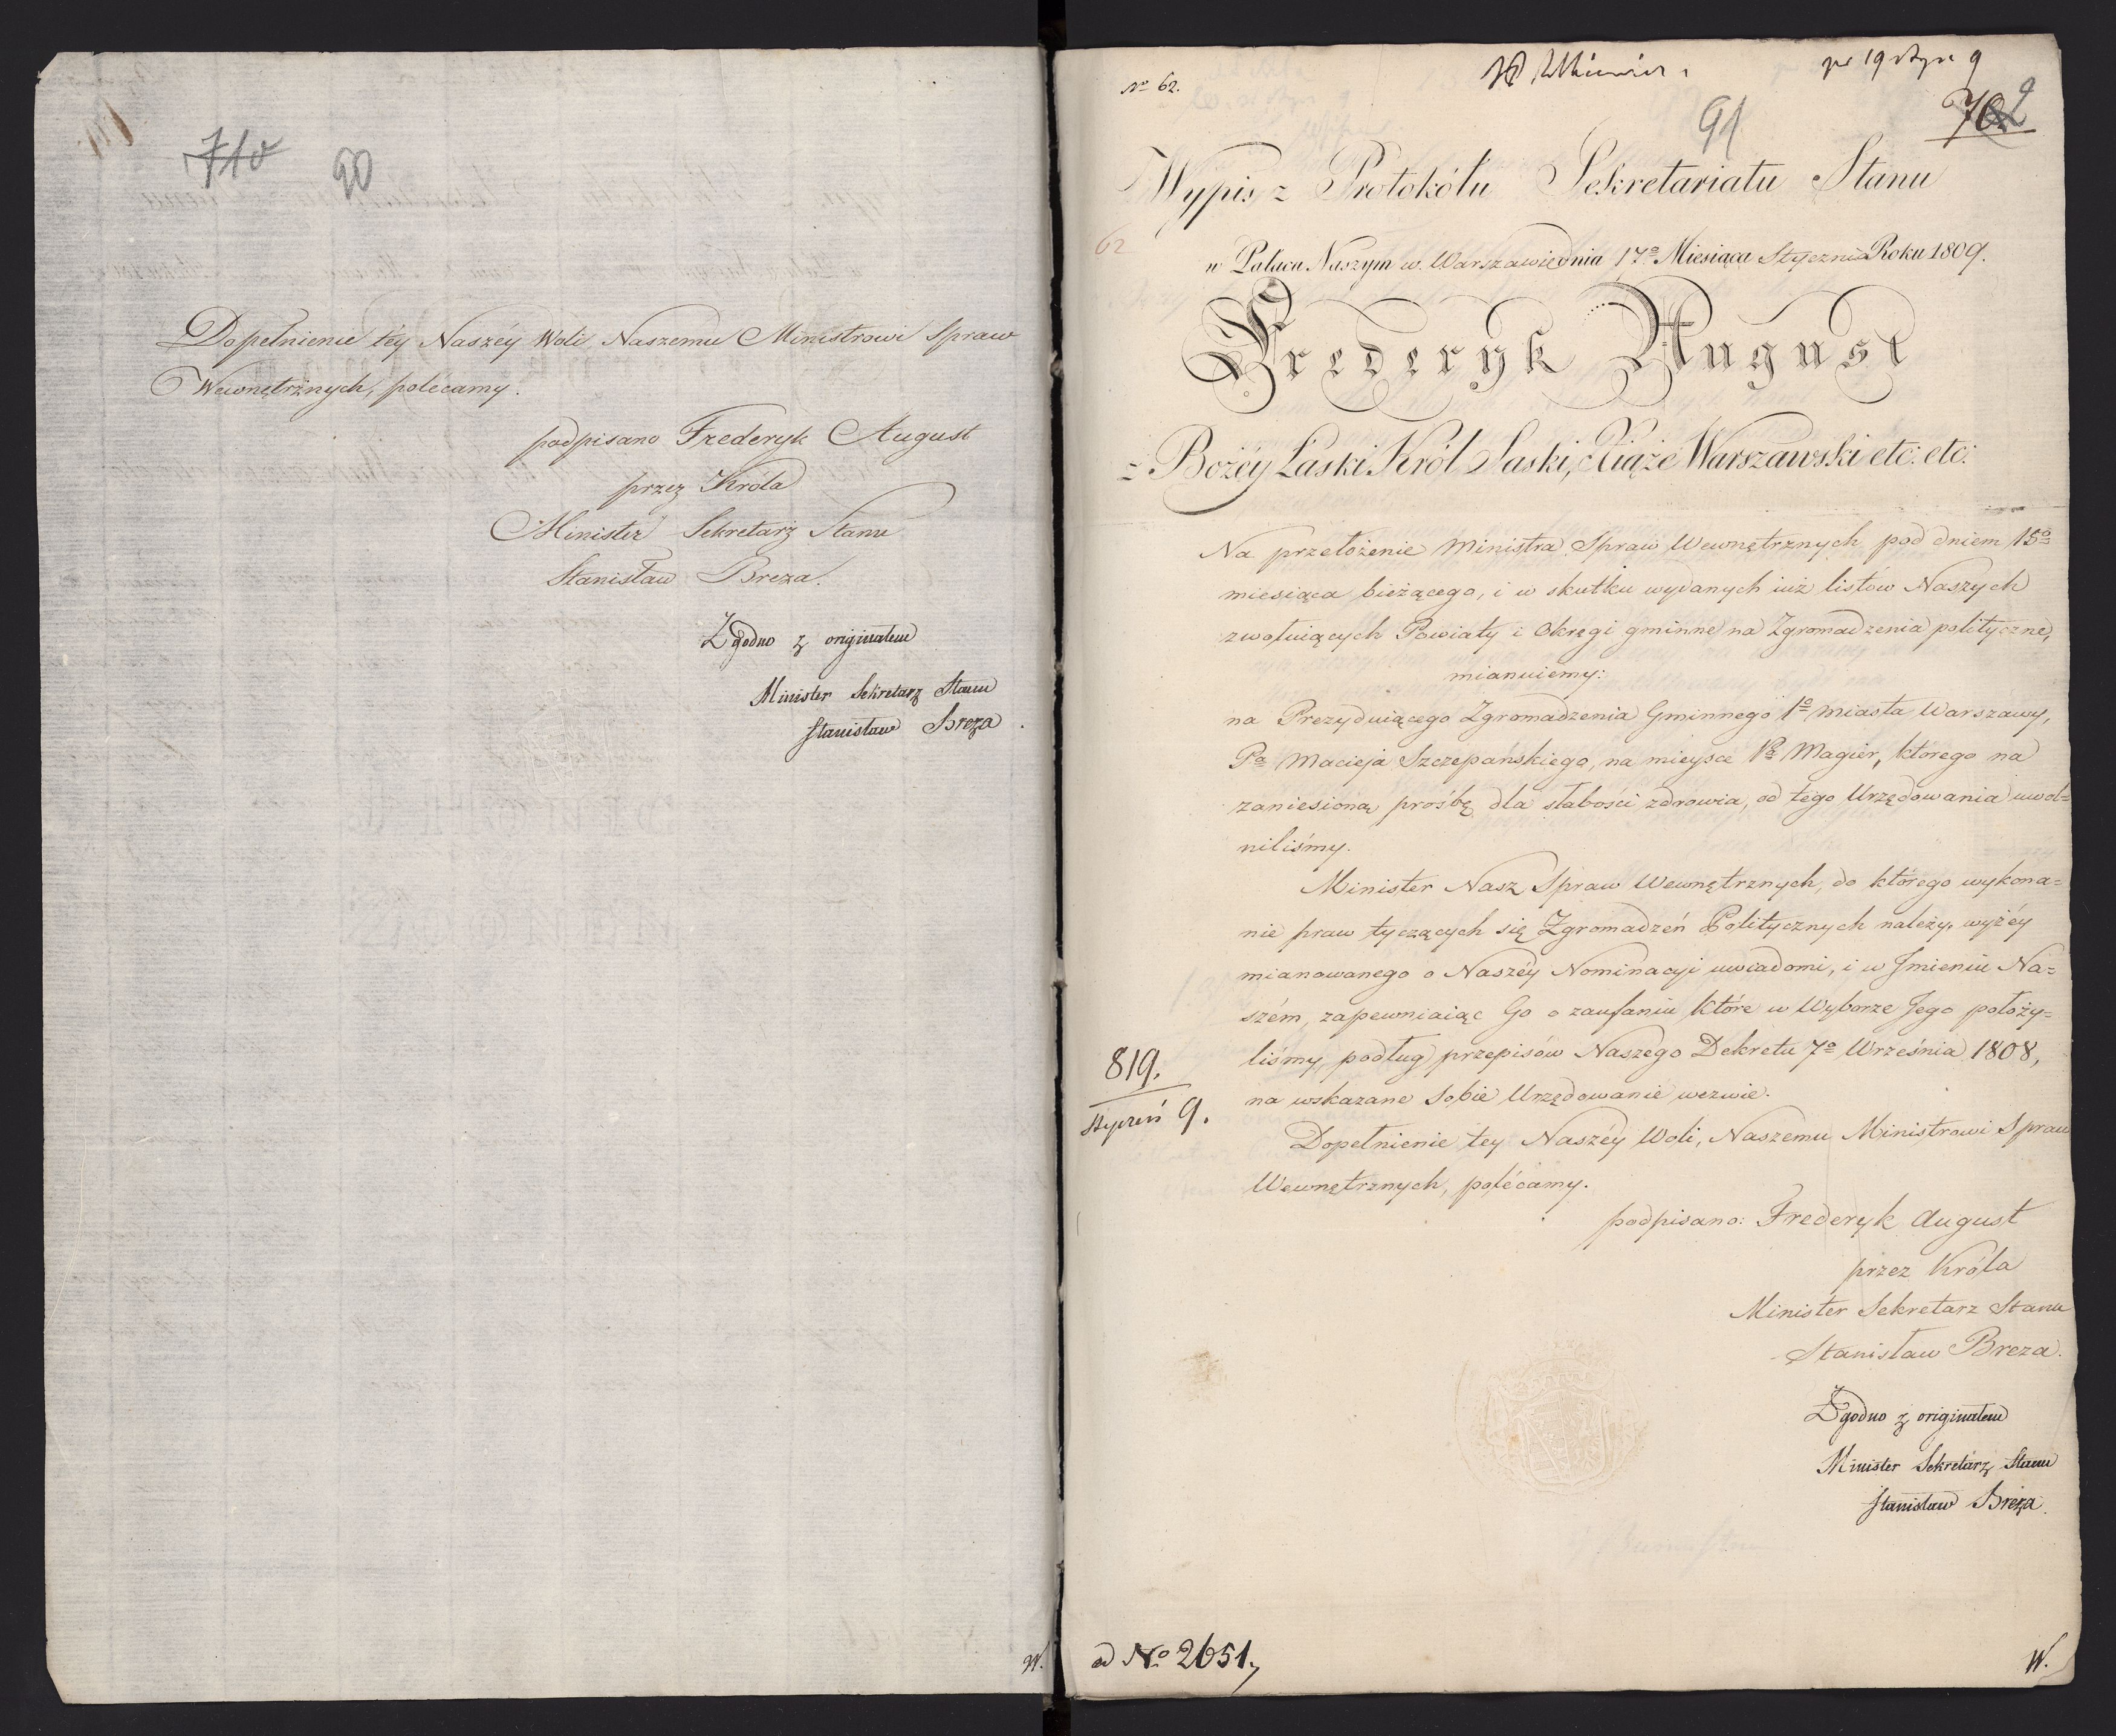 710
90
Dopełnienie téy Naszéy Woli Naszemu Ministrowi Spraw
Wewnętrznych, polécamy.
podpisano Frederyk August
przez Króla
Minister Sekretarz Stanu
Stanisław Breza.
Zgodno z originałem
Minister Sekretarz Stanu
Stanisław Breza.
W.
No 62.
pr 19 stycz 9
91
702
Wypis z Protokółu Sekretariatu Stanu
62
w Pałacu Naszym w Warszawie dnia 17o Miesiąca Stycznia Roku 1809.
Frederyk August
z Bożéy Łaski Król Saski, Xiąże Warszawski etc: etc:
Na przełożenie Ministra Spraw Wewnętrznych pod dniem 15o
miesiąca bieżącego, i w skutku wydanych iuż listów Naszych
zwołuiących Powiaty i Okręgi gminne na Zgromadzenia polityczne,
mianuiemy:
na Prezyduiącego Zgromadzenia Gminnego 1o miasta Warszawy,
Pa Macieja Szczepańskiego, na mieysce Pa Magier, którego na
zaniesioną prośbę dla słabości zdrowia, od tego Urzędowania uwol=
niliśmy.
Minister Nasz Spraw Wewnętrznych, do którego wykona=
nie praw tyczących się Zgromadzeń Politycznych należy, wyżéy
mianowanego o Naszéy Nominacyi uwiadomi, i w Jmieniu Na=
szém, zapewniaiąc Go o zaufaniu które w Wyborze Jego położy=
liśmy, podług przepisów Naszego Dekretu 7o Września 1808,
na wskazane sobie Urzędowanie wezwie.
819.
Styczeń 9.
Dopełnienie tey Naszéy Woli, Naszemu Ministrowi Spraw
Wewnętrznych, polécamy.
podpisano: Frederyk August
przez Króla
Minister Sekretarz Stanu
Stanisław Breza.
Zgodno z originałem
Minister Sekretarz Stanu
Stanisław Breza.
ad No 2651,
W.